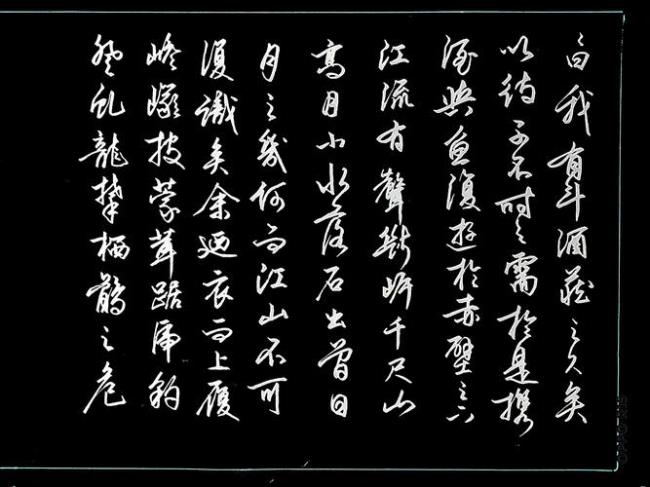 曰我有斗酒藏之久矣
以待子不时之需於是攜
酒與魚復遊於赤壁之下
江流有聲斷岸千尺山
高月小水落石出曾日
月之幾何而江山不可
復識矣余廼衣而上履
巉巖披蒙茸踞虎豹
登虬龍攀栖鶻之危